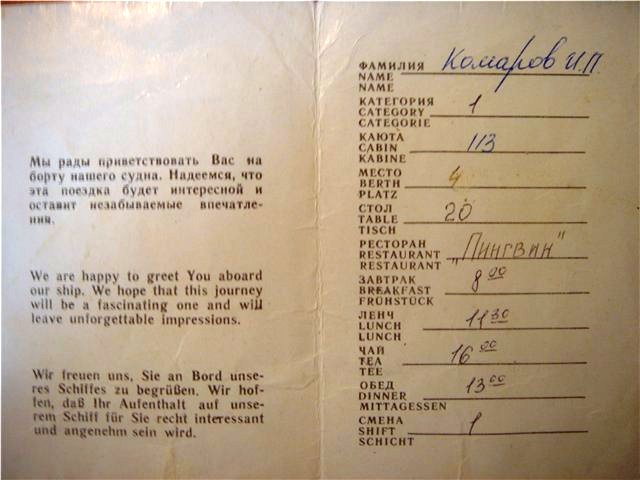 Мы рады приветствовать Вас на
борту нашего судна. Надеемся, что
эта поездка будет интересной и
оставит незабываемые впечатле-
ния.
We are happy to greet You aboard
our ship. We hope that this journey
will be a fascinating one and will
leave unforgettable impressions.
Wir freuen uns, Sie an Bord unse-
res Schiffes zu begrüßen. Wir hof-
fen, daß Ihr Aufenthalt auf unse-
rem Schiff für Sie recht interessant
und angenehm sein wird.
ФАМИЛИЯ
NAME Комаров И.П.
NAME
КАТЕГОРИЯ
CATEGORY 1
CATEGORIE
КАЮТА
CABIN 113
KABINE
МЕСТО
BERTH 4
PLATZ
СТОЛ
TABLE 20
TISCH
РЕСТОРАН
RESTAURANT „Пингвин"
RESTAURANT
ЗАВТРАК
BREAKFAST 8 00
FRÜHSTÜCK
ЛЕНЧ
LUNCH 11 30
LUNCH
ЧАЙ
TEA 16 00
TEE
ОБЕД
DINNER 13 00
MITTAGESSEN
СМЕНА
SHIFT 1
SCHICHT